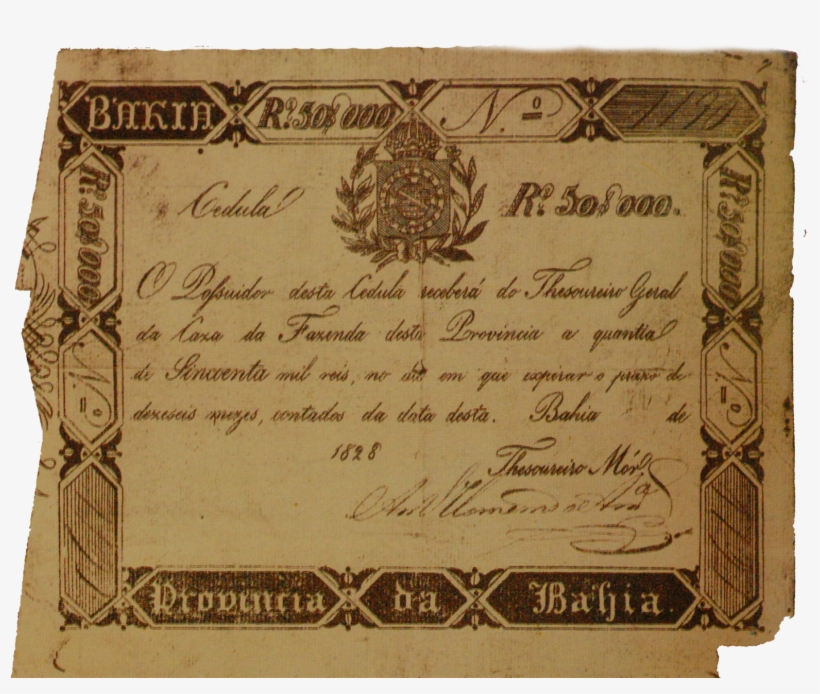 BAHIA Rˢ 50$000 N.º
Cedula Rˢ 50$000.
O Poſsuidor desta Cedula receberá do Thesoureiro Geral
da Caza da Fazenda desta Provincia a quantia
de Sincoenta mil reis, no dia em que expirar o prazo de
dezeseis mezes, contados da data desta. Bahia de
1828
Thesoureiro Mór
Rˢ 50$000
N.º
Rˢ 50$000
N.º
Provincia da Bahia.